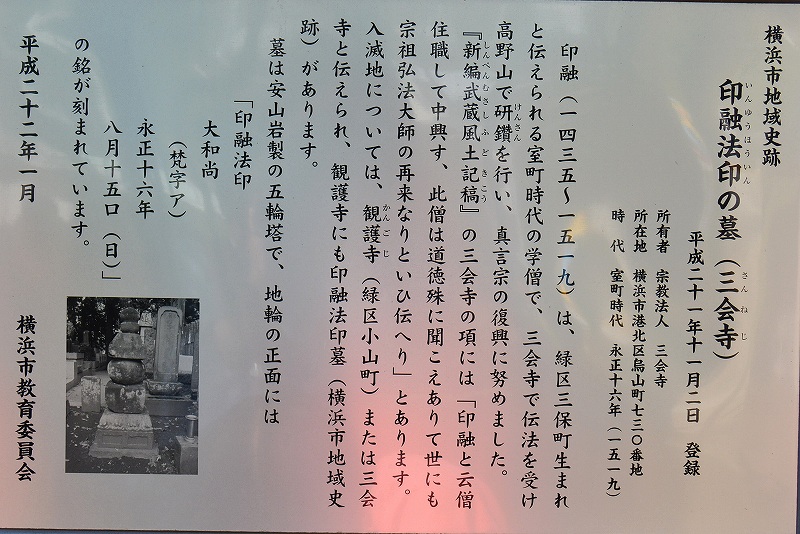 横浜市地域史跡
印融法印の墓（三会寺）
いんゆうほういん　さんねじ
平成二十一年十一月二日　登録
所有者　宗教法人　三会寺
所在地　横浜市港北区鳥山町七三〇番地
時　代　室町時代　永正十六年（一五一九）
印融（一四三五～一五一九）は、緑区三保町生まれ
と伝えられる室町時代の学僧で、三会寺で伝法を受け
高野山で研鑽を行い、真言宗の復興に努めました。
けんさん
『新編武蔵風土記稿』の三会寺の項には「印融と云僧
しんぺんむさしふどきこう
住職して中興す、此僧は道徳殊に聞こえありて世にも
宗祖弘法大師の再来なりといひ伝へり」とあります。
入滅地については、観護寺（緑区小山町）または三会
かんごじ
寺と伝えられ、観護寺にも印融法印墓（横浜市地域史
跡）があります。
墓は安山岩製の五輪塔で、地輪の正面には
「印融法印
大和尚
（梵字ア）
永正十六年
八月十五口（日）」
の銘が刻まれています。
平成二十二年一月
横浜市教育委員会